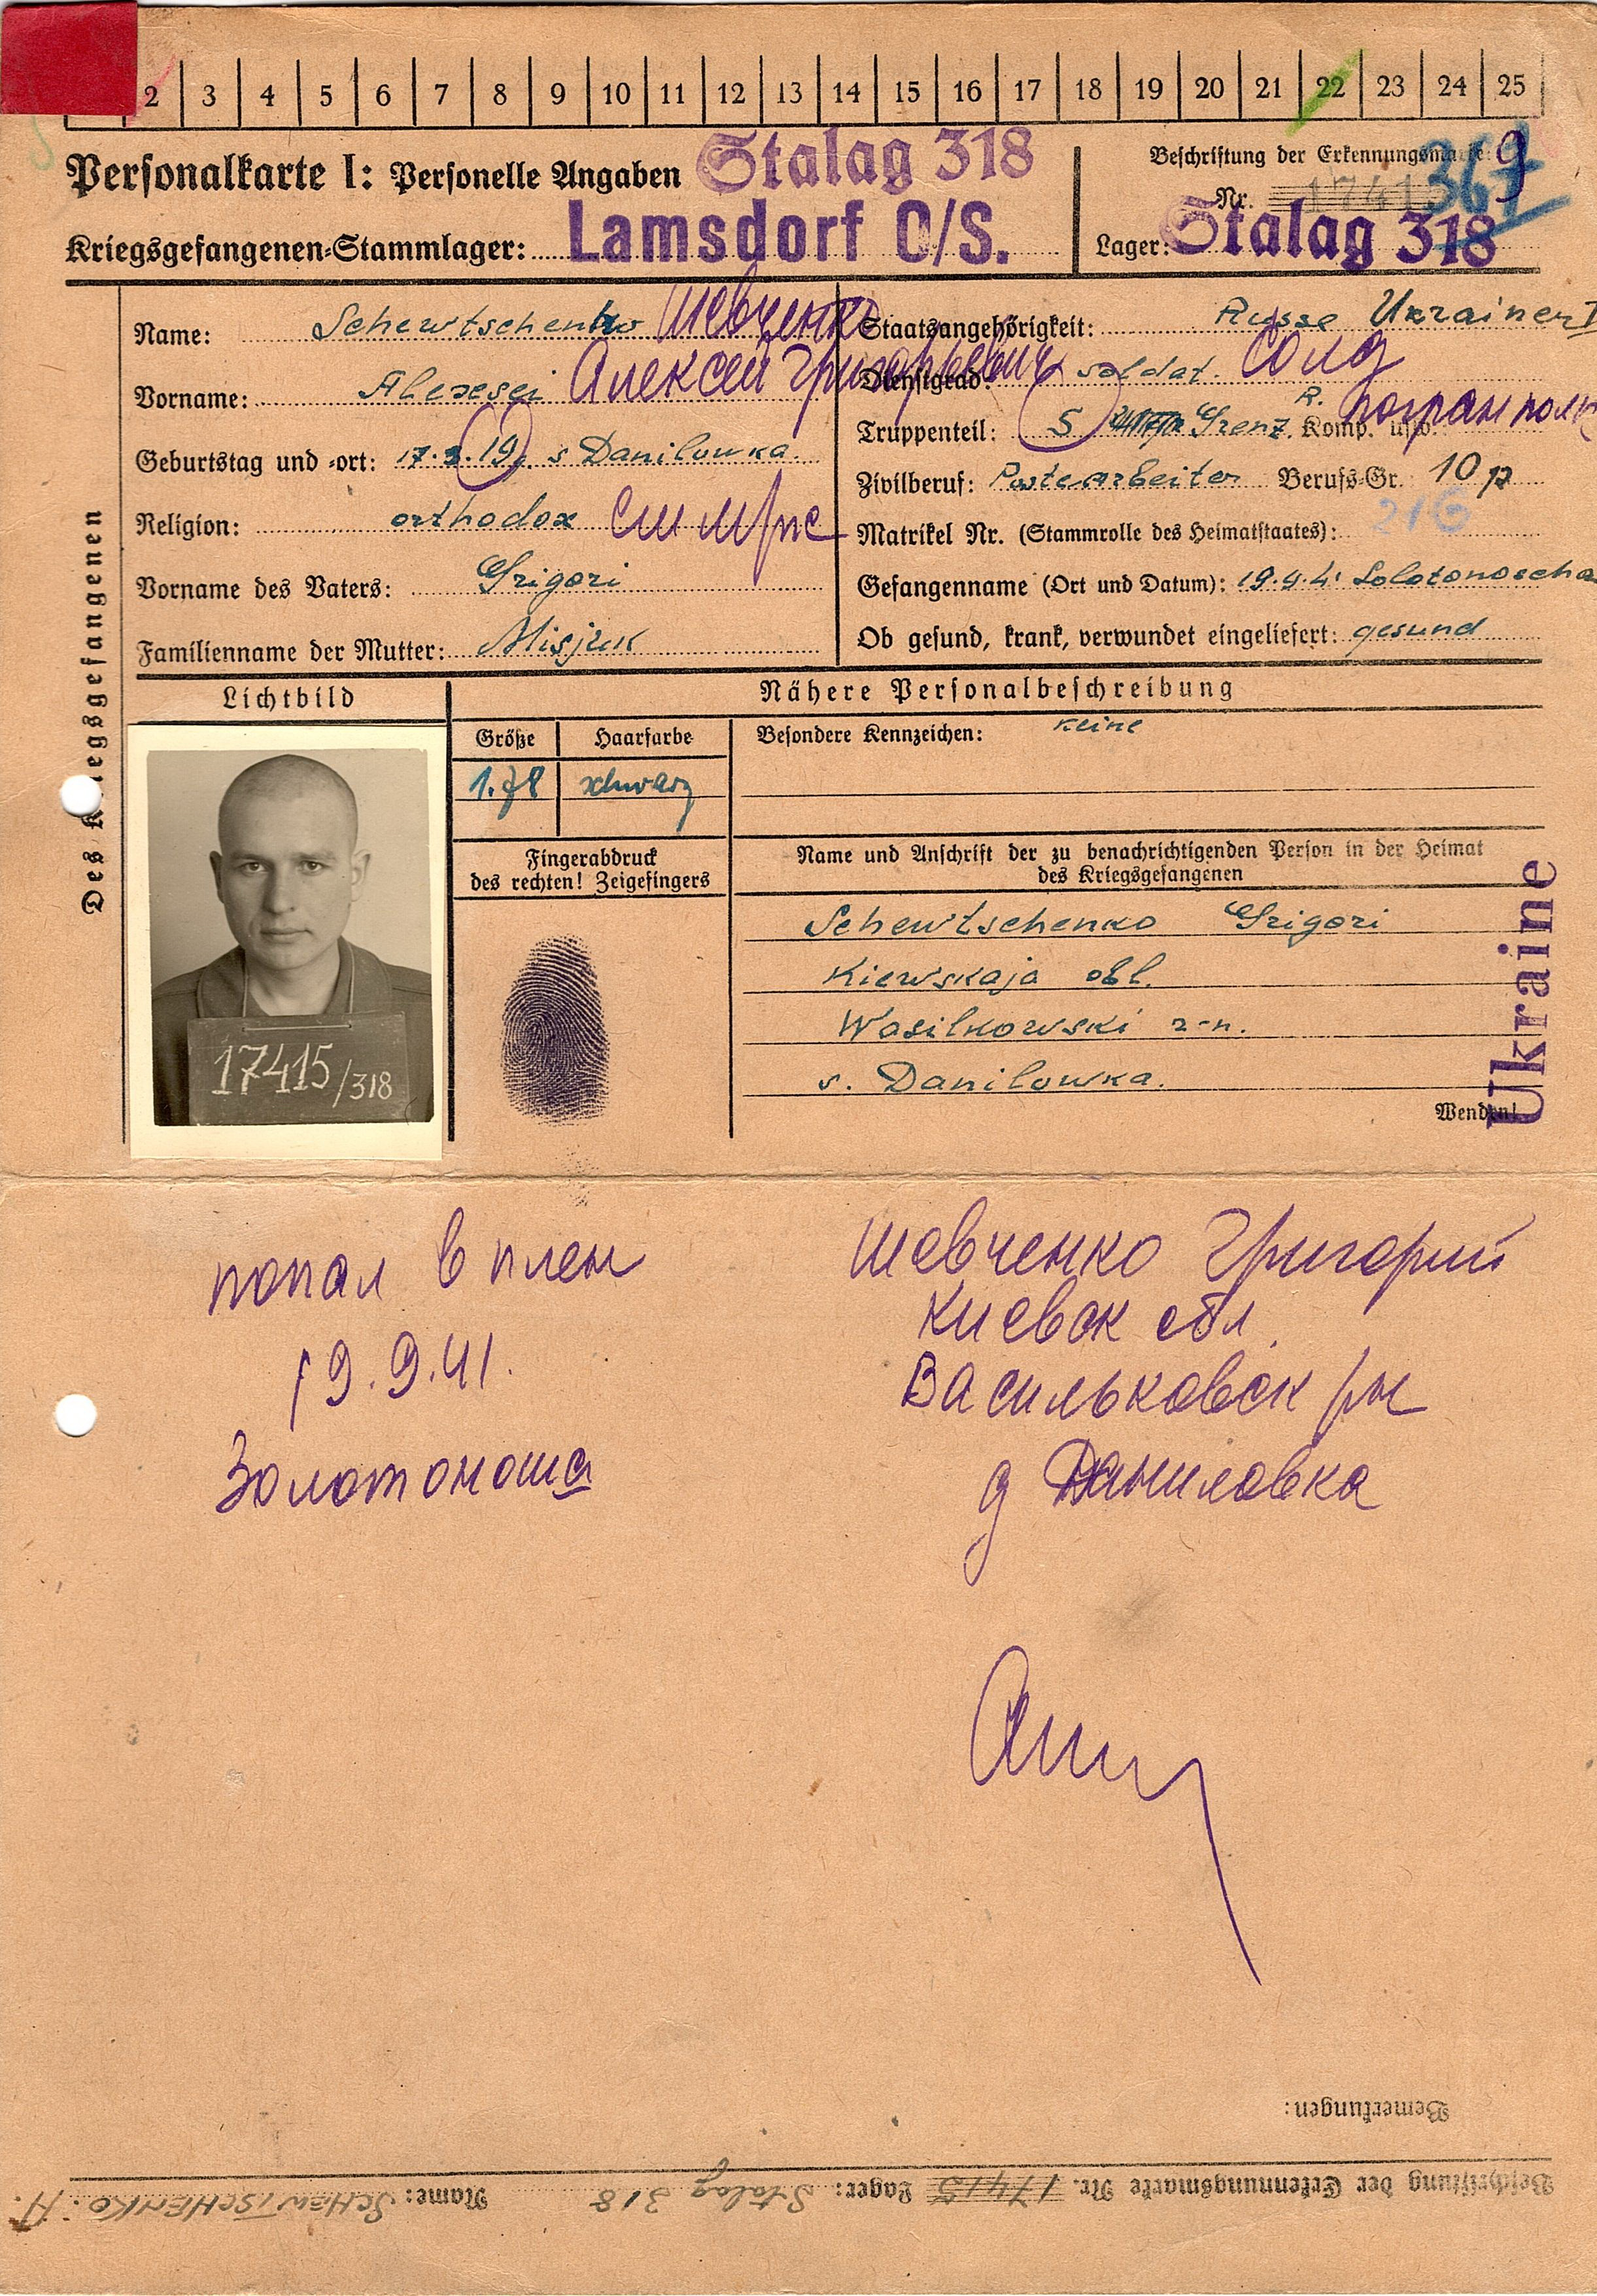 2 3 4 5 6 7 8 9 10 11 12 13 14 15 16 17 18 19 20 21 22 23 24 25
Personalkarte I: Personelle Angaben Stalag 318
Kriegsgefangenen-Stammlager: Lamsdorf O/S.
Beschriftung der Erkennungsmarke:
Nr. 17415 367
Lager: Stalag 318
Des Kriegsgefangenen
Name: Schewtschenko Шевченко
Vorname: Alexsei Алексей Григорьевич
Geburtstag und -ort: 17.3.19. s Danilowka.
Religion: orthodox
Vorname des Vaters: Grigori
Familienname der Mutter: Misjuk
Staatsangehörigkeit: Russe Ukrainer
Dienstgrad: soldat. Солд
Truppenteil: 5 Grenz. R. Komp. usw. погран полк
Zivilberuf: Berufs-Gr. 10 p
216
Matrikel Nr. (Stammrolle des Heimatstaates):
Gefangenname (Ort und Datum): 19.9.41 Solotonoscha
Ob gesund, krank, verwundet eingeliefert: gesund
Lichtbild
17415/318
Nähere Personalbeschreibung
Größe Haarfarbe
1.78 schwarz
Besondere Kennzeichen: keine
Fingerabdruck
des rechten! Zeigefingers
Name und Anschrift der zu benachrichtigenden Person in der Heimat
des Kriegsgefangenen
Schewtschenko Grigori
Kiewskaja obl.
Wasilkowski r-n.
s. Danilowka.
Wenden!
Ukraine
попал в плен
19.9.41.
Золотоноша
Шевченко Григорий
Киевск обл.
Васильковск рн
д Даниловка
Bemerkungen:
Beschriftung der Erkennungsmarke Nr. 17415 Lager: Stalag 318 Name: SCHEWTSCHENKO. A.